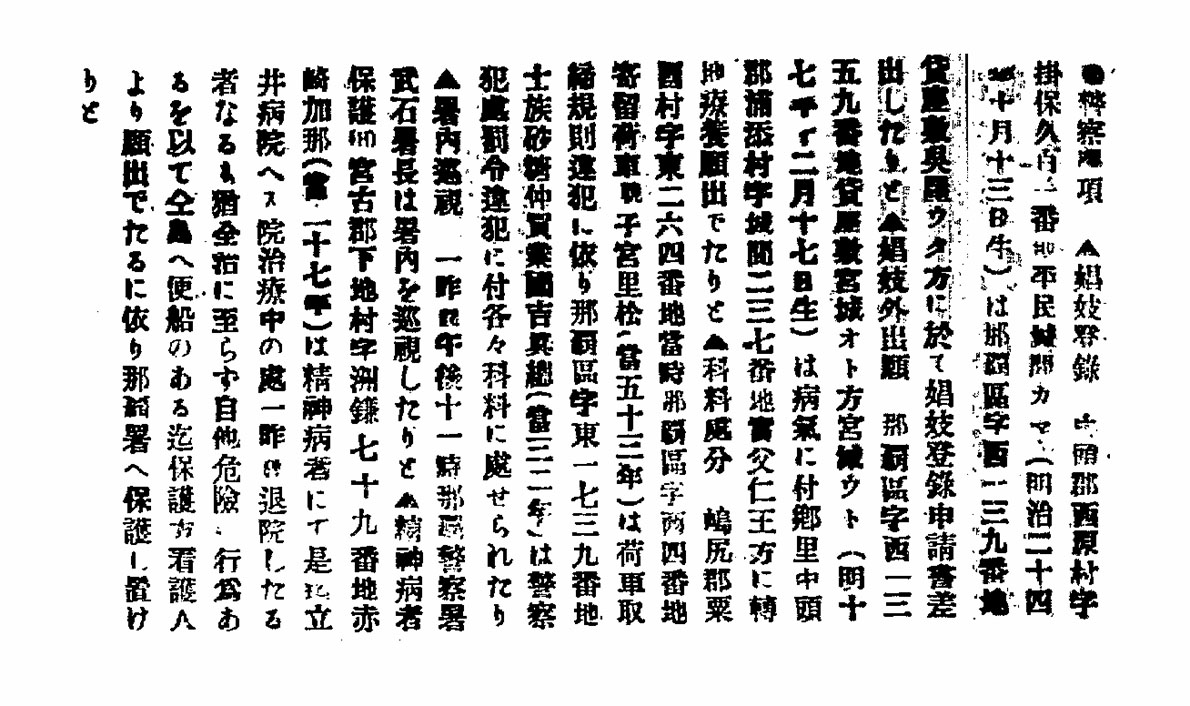 ●警察事項　▲娼妓登錄　中頭郡西原村字
掛保久百二番地平民城間カマ(明治二十四
年十月十三日生)は那覇區字西一三九番地
貸座敷與儀ウタ方に於て娼妓登錄申請書差
出したりと▲娼妓外出願　那覇區字西一三
五九番地貸座敷宮城オト方宮城ウト(明十
七年十二月十七日生)は病氣に付郷里中頭
郡浦添村字城間二三七番地實父仁王方に轉
地療養願出でたりと▲科料處分　嶋尻郡粟
國村字東二六四番地當時那覇區字西四番地
寄留荷車挽子宮里松(當五十三年)は荷車取
締規則違犯に依り那覇區字東一七三九番地
士族砂糖仲買業國吉眞總(當三二年)は警察
犯處罰令違犯に付各々科料に處せられたり
▲署內巡視　一昨日午後十一時那覇警察署
武石署長は署內を巡視したりと▲精神病者
保護　宮古郡下地村字洲鎌七十九番地赤
崎加那(當二十七年)は精神病者にて是迄立
井病院へ入院治療中の處一昨日退院したる
者なるも猶全治に至らず自他危險の行爲あ
るを以て仝島へ便船のある迄保護方看護人
より願出でたるに依り那覇署へ保護し置け
りと